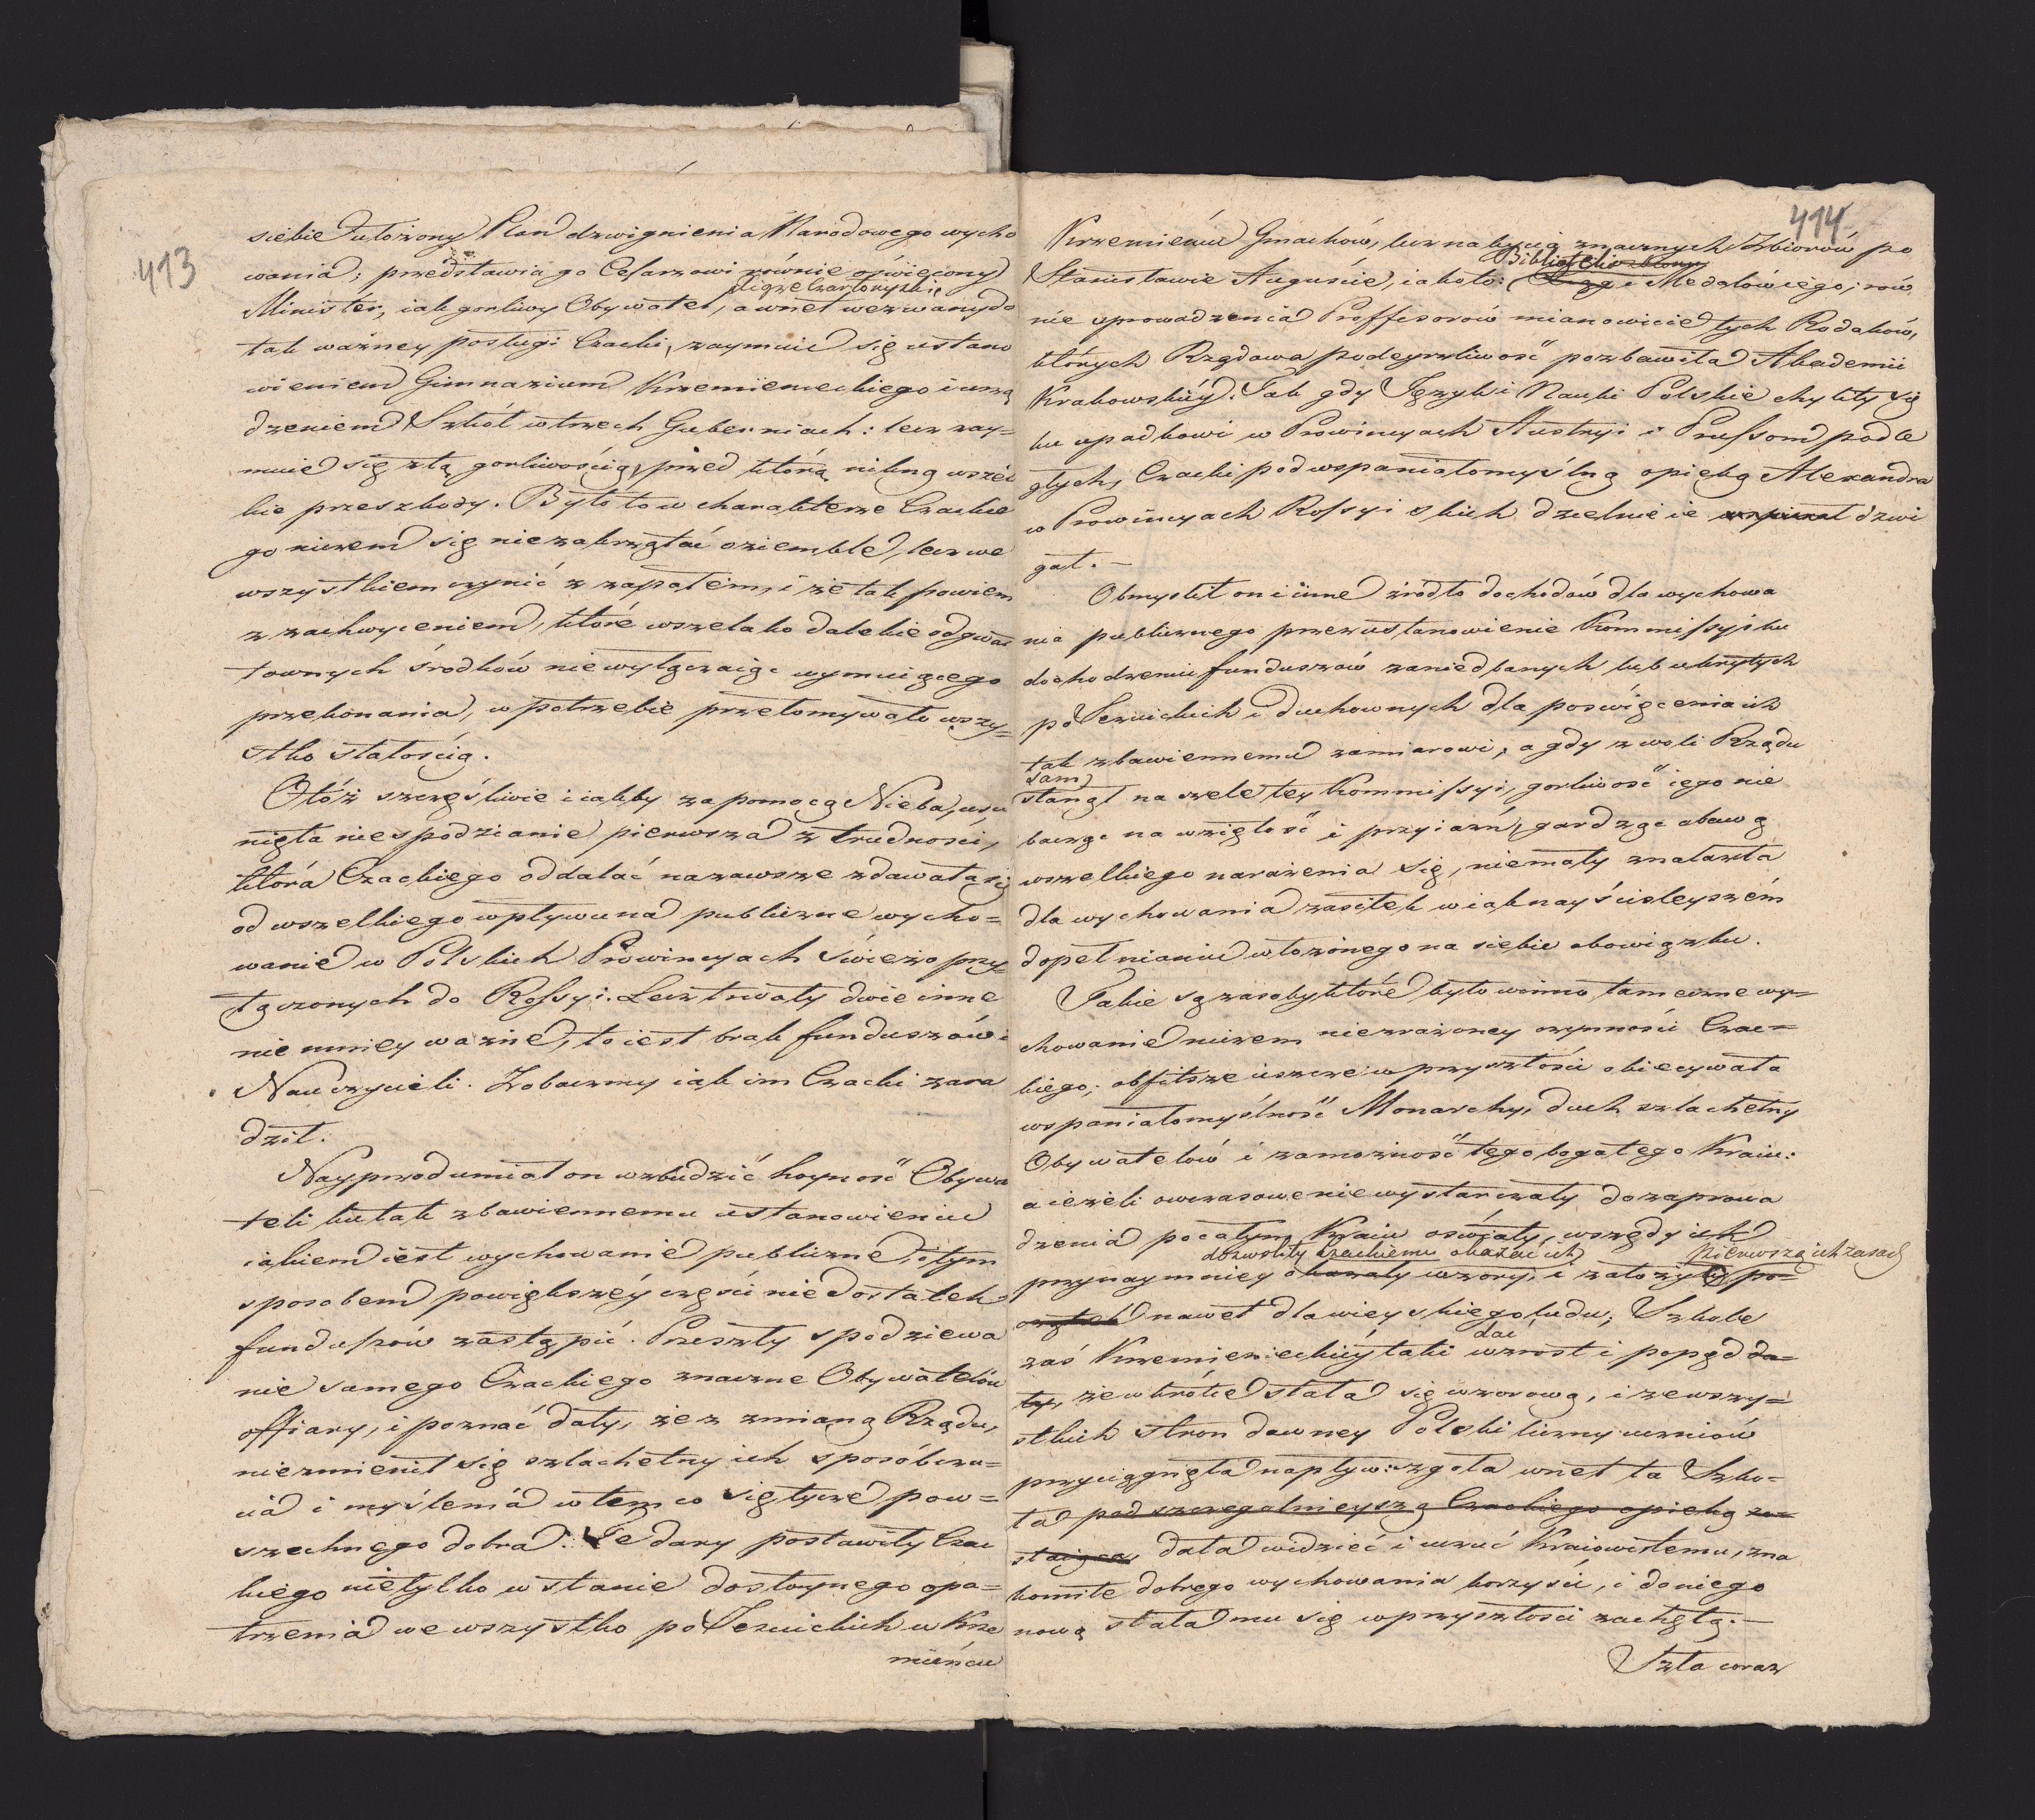 413
siebie ułożony Plan dzwignienia Narodowego wycho
wania; przedstawia go Cesarzowi równie oświecony
Xiąże Czartoryski,
Minister, iak gorliwy Obywatel, a wnet wezwany do
tak ważney posługi Czacki, zaymuie się ustano
wieniem Gimnazium Krzemienieckiego i urzą
dzeniem Szkół w trzech Guberniach: lecz zay=
muie się z tą gorliwością, przed którą nikną wszel
kie przeszkody. Było to w charakterze Czackie
go niczem się nie zakrzątać oziemble, lecz we
wszystkiem czynić z zapałem, i że tak powiem
z zachwyceniem, które wszelako dalekie od gwał
townych środków nie wyłączaiąc uymuiącego
przekonania, w potrzebie przełomywało wszy=
stko stałością.
Otóż szczęśliwie i iakby za pomocą Nieba, usu
nięta niespodzianie pierwsza z trudności,
która Czackiego oddalać na zawsze zdawała się
od wszelkiego wpływu na publiczne wycho=
wanie w Polskich Prowincyach świeżo przy=
łączonych do Rossyi. Lecz trwały dwie inne
nie mniey ważne, to iest brak funduszów i
Nauczycieli. Zobaczmy iak im Czacki zara
dził.
Nayprzod umiał on wzbudzić hoyność Obywa
teli ku tak zbawiennemu ustanowieniu
iakiem iest wychowanie publiczne, i tym
sposobem powiększéy części niedostatek
funduszów zastąpić. Przeszły spodziewa
nie samego Czackiego znaczne Obywatelów
offiary, i poznać dały, że z zmianą Rządu,
niezmienił się szlachetny ich sposób czu=
cia i myślenia w tem co się tycze pow=
szechnego dobra. Te dary postawiły Czac
kiego nietylko w stanie dostoynego opa=
trzenia we wszystko po Jezuickich w Krze
mieńcu
414
Krzemieńcu Gmachów, lecz nabycia znacznych Zbiorów po
Biblioteki
Stanisławie Auguście, iako to: Xiąg i Medalów iego; rów
nie sprowadzenia Proffessorów mianowicie tych Rodaków,
których Rządowa podeyrzliwość pozbawiła Akademii
Krakowskiéy. Tak gdy Język i Nauki Polskie chyliły się
ku upadkowi w Prowincyach Austryi i Prussom podle
głych, Czacki pod wspaniałomyślną opieką Alexandra
w Prowincyach Rossyiskich dzielnie ie wspierał dzwi
gał. —
Obmyślił on i inne źródło dochodów dla wychowa
nia publicznego przez ustanowienie Kommissyi ku
dochodzeniu funduszów zaniedbanych lub ukrytych
po Jezuickich i duchownych dla poświęcenia ich
tak zbawiennemu zamiarowi; a gdy z woli Rządu
sam
stanął na czele tey Kommissyi, gorliwość iego nie
bacząc na wziętość i przyiaźń, gardząc obawą
wszelkiego narażenia się, niemały znalazła
dla wychowania zasiłek w iaknayściśleyszém
dopełnianiu włożonego na siebie obowiązku.
Takie są zasoby które było winno tameczne wy=
chowanie niczem niezrażoney czynności Czac=
kiego; obfitsze ieszcze w przyszłości obiecywała
wspaniałomyślność Monarchy, duch szlachetny
Obywatelów i zamożność tego bogatego Kraiu:
a ieżeli owczasowe niewystarczały do zaprowa
dzenia po całym Kraiu oświaty, wszędy ich
dozwoliły Czackiemu okazać ich pierwszą ich zasad
przynaymniey okazały wzory, i założyły po=
czątek nawet dla wieyskiego ludu; Szkole
dać
zaś Krzemienieckiéy taki wzrost i popęd da=
ły, że wkrótce stała się wzorową, i ze wszy=
stkich stron dawney Polski liczny uczniów
przyciągnęła napływ: zgoła wnet ta Szko=
ła pod szczegolnieyszą Czackiego opieką zo=
staiąca, dała widzieć i uczuć Kraiowi temu, zna
komite dobrego wychowania korzyści, i do niego
nową stała mu się w przyszłości zachętą. —
Szła coraz